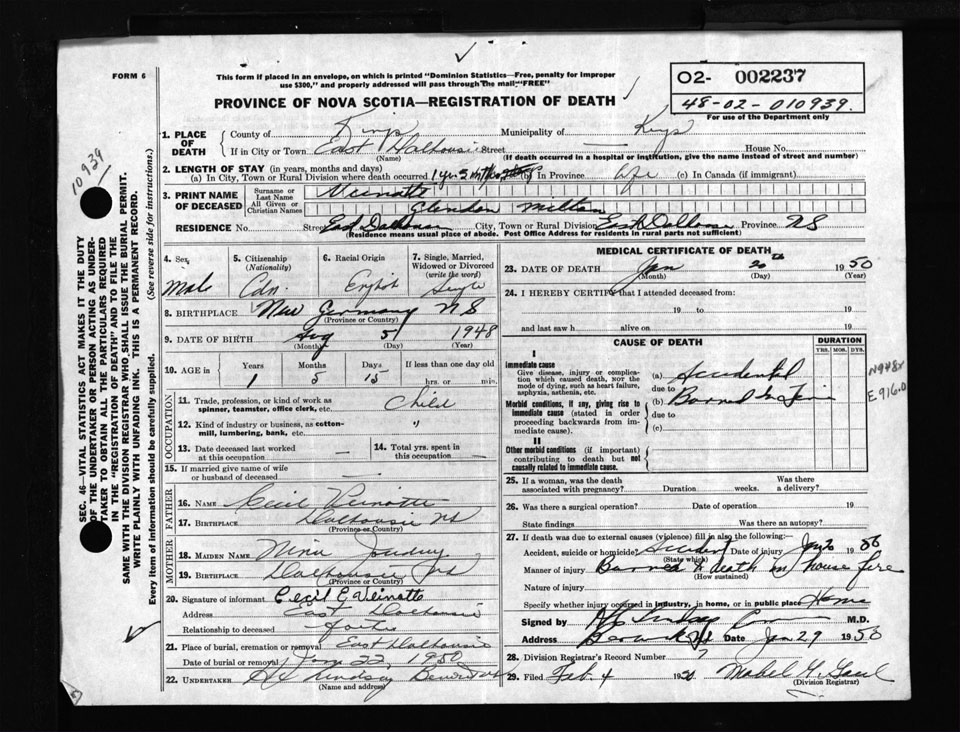 FORM 6
This form if placed in an envelope, on which is printed "Dominion Statistics—Free, penalty for improper
use $300," and properly addressed will pass through the mail—"FREE"
PROVINCE OF NOVA SCOTIA—REGISTRATION OF DEATH
O2- 002237
48-02-010939.
For use of the Department only
10939
SEC. 46—VITAL STATISTICS ACT MAKES IT THE DUTY
OF THE UNDERTAKER OR PERSON ACTING AS UNDER-
TAKER TO OBTAIN ALL THE PARTICULARS REQUIRED
IN THE "REGISTRATION OF DEATH" AND TO FILE THE
SAME WITH THE DIVISION REGISTRAR WHO SHALL ISSUE THE BURIAL PERMIT.
WRITE PLAINLY WITH UNFADING INK. THIS IS A PERMANENT RECORD.
Every item of information should be carefully supplied. (See reverse side for instructions.)
1. PLACE OF DEATH
County of Kings Municipality of Kings
If in City or Town East Dalhousie Street — House No.
(Name) (If death occurred in a hospital or institution, give the name instead of street and number)
2. LENGTH OF STAY (in years, months and days)
(a) In City, Town or Rural Division where death occurred 1 yr 5 (b) In Province life (c) In Canada (if immigrant)
3. PRINT NAME OF DECEASED
Surname or Last Name Veinotte
All Given or Christian Names Glendon Milton
RESIDENCE No. Street East Dalhousie City, Town or Rural Division East Dalhousie Province NS
(Residence means usual place of abode. Post Office Address for residents in rural parts not sufficient)
4. Sex, Male
5. Citizenship (Nationality) Cdn.
6. Racial Origin English
7. Single, Married, Widowed or Divorced (write the word) Single
8. BIRTHPLACE New Germany N S
(Province or Country)
9. DATE OF BIRTH Aug 5 1948
(Month) (Day) (Year)
10. AGE in Years 1 Months 5 Days 15 If less than one day old hrs. or min.
OCCUPATION
11. Trade, profession, or kind of work as spinner, teamster, office clerk, etc. Child
12. Kind of industry or business, as cotton-mill, lumbering, bank, etc. "
13. Date deceased last worked at this occupation —
14. Total yrs. spent in this occupation —
15. If married give name of wife or husband of deceased —
FATHER
16. Name Cecil Veinotte
17. Birthplace Dalhousie NS
(Province or Country)
MOTHER
18. Maiden Name
19. Birthplace Dalhousie NS
(Province or Country)
20. Signature of informant Cecil E Veinotte
Address East Dalhousie
Relationship to deceased father
21. Place of burial, cremation or removal East Dalhousie
Date of burial or removal Jan 22, 1950
22. UNDERTAKER Lindsay Berwick NS
(Name and address)
MEDICAL CERTIFICATE OF DEATH
23. DATE OF DEATH Jan 20th 1950
(Month) (Day) (Year)
24. I HEREBY CERTIFY that I attended deceased from:
19 to 19
and last saw h alive on 19
CAUSE OF DEATH
DURATION
YRS. MOS. DYS.
I
Immediate cause
Give disease, injury or complication which caused death, NOT the mode of dying, such as heart failure, asphyxia, asthenia, etc.
(a) Accidental
due to
Morbid conditions, if any, giving rise to immediate cause (stated in order proceeding backwards from immediate cause).
(b) Burned in Fire
due to
(c)
N948
E916.0
II
Other morbid conditions (if important) contributing to death but not causally related to immediate cause.
25. If a woman, was the death associated with pregnancy? Duration weeks. Was there a delivery?
26. Was there a surgical operation? Date of operation 19
State findings Was there an autopsy?
27. If death was due to external causes (violence) fill in also the following:
Accident, suicide or homicide? Accident Date of injury Jan 20 1950
(State which)
Manner of injury Burned to death in house fire
(How sustained)
Nature of injury
Specify whether injury occurred in industry, in home, or in public place Home
Signed by M.D.
Address Berwick NS Date Jan 29 1950
28. Division Registrar's Record Number 7
29. Filed Feb. 4 1950 Mabel G. Saul
(Division Registrar)